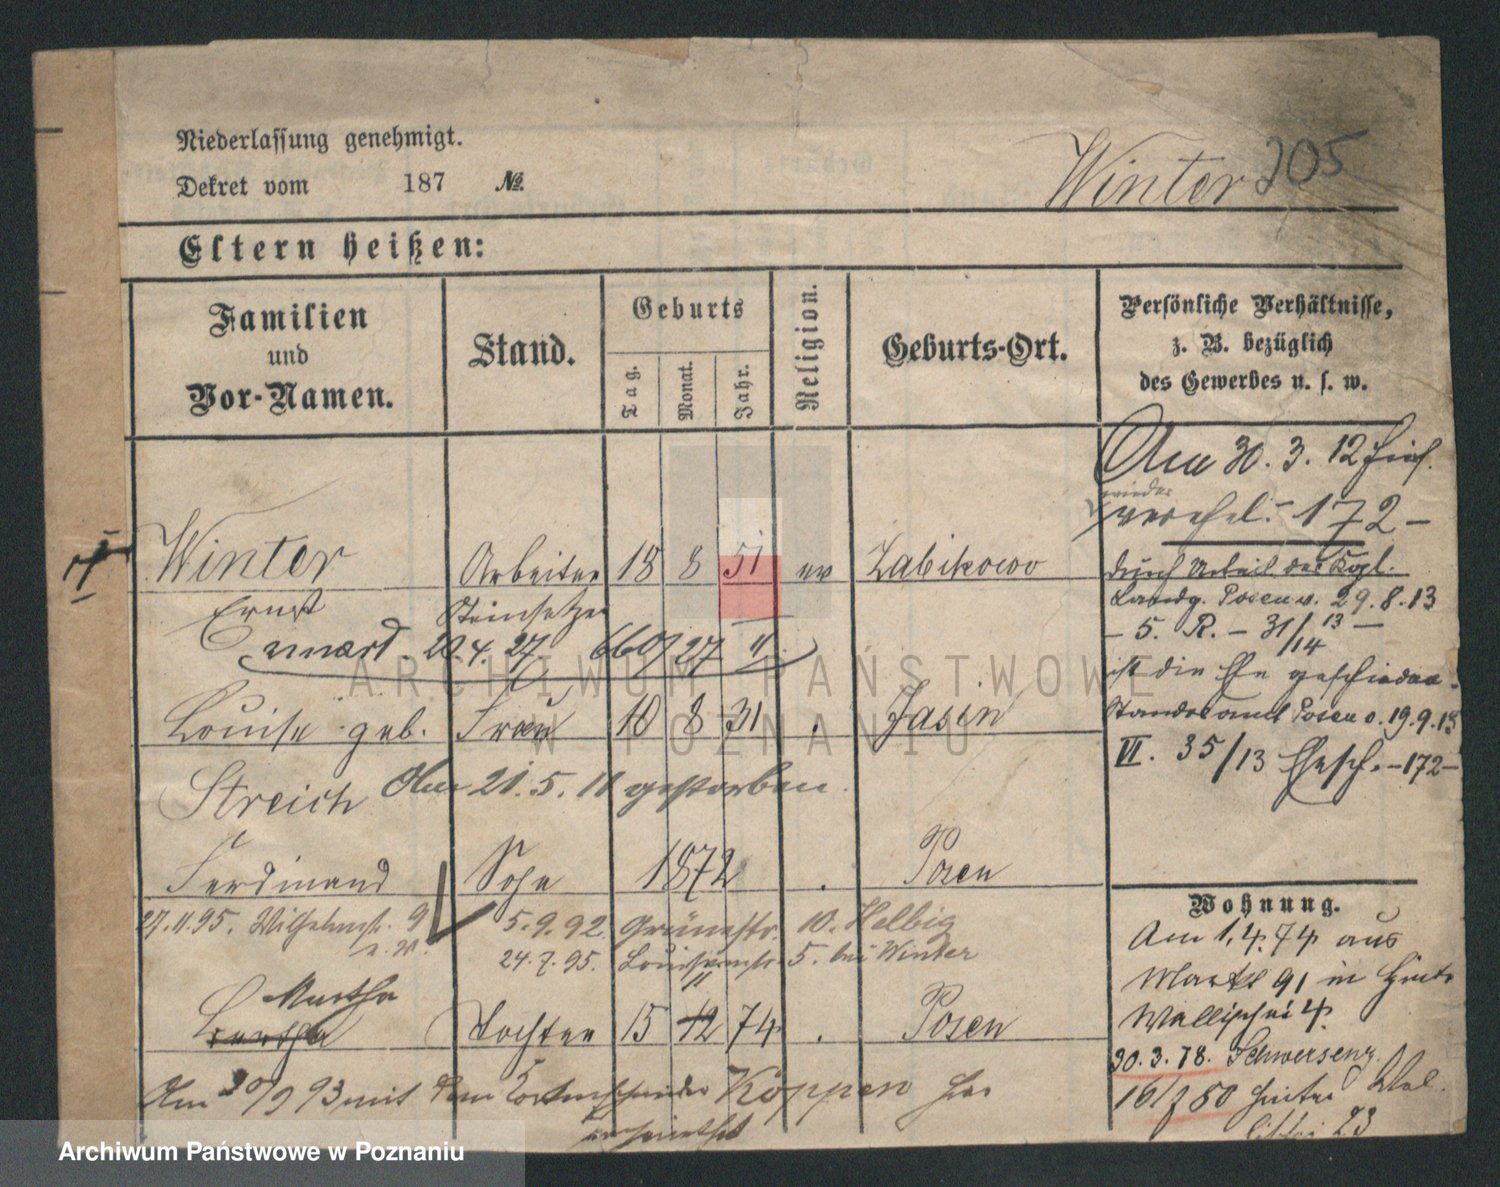 Niederlassung genehmigt.
Dekret vom 187 №.
Winter 205
Eltern heißen:
Familien und Vor-Namen.
Stand.
Geburts
Tag.
Monat.
Jahr.
Religion.
Geburts-Ort.
Persönliche Verhältnisse,
z. B. bezüglich
des Gewerbes u. s. w.
Am 30. 3. 12 hies.
wieder
verehel. - 172 -
Winter Arbeiter 18 8 51 ev Zabikowo
Ernst Steinsetzer
20.4.27 660/27 II
durch Urteil des Kgl.
Landg. Posen v. 29.8.13
- 5. R. - 31/13 -
14
ist die Ehe geschieden.
Louise geb. Frau 10 8 31 Jasin
Standesamt Posen v. 19.9.13
VI. 35/13 Ehesch. - 172 -
Streich Am 21.5.11 gestorben.
Ferdinand Sohn 1872 Posen
27.11.95. Wilhelmstr. 9 5.9.92 Grünestr. 10. Helbig
24.7.95. Louisenstr. 5. bei Winter
Martha
Bertha Tochter 15 12 74 Posen
Am 30/9 93 mit dem Koppen
verheirathet
Wohnung.
Am 1.4.74 aus
Markt 91 in Hinter
Wallischei 4.
30.3.78. Schwersenz.
16/7 80 Hinter Wal
lischei 23
ARCHIWUM PAŃSTWOWE
W POZNANIU
Archiwum Państwowe w Poznaniu